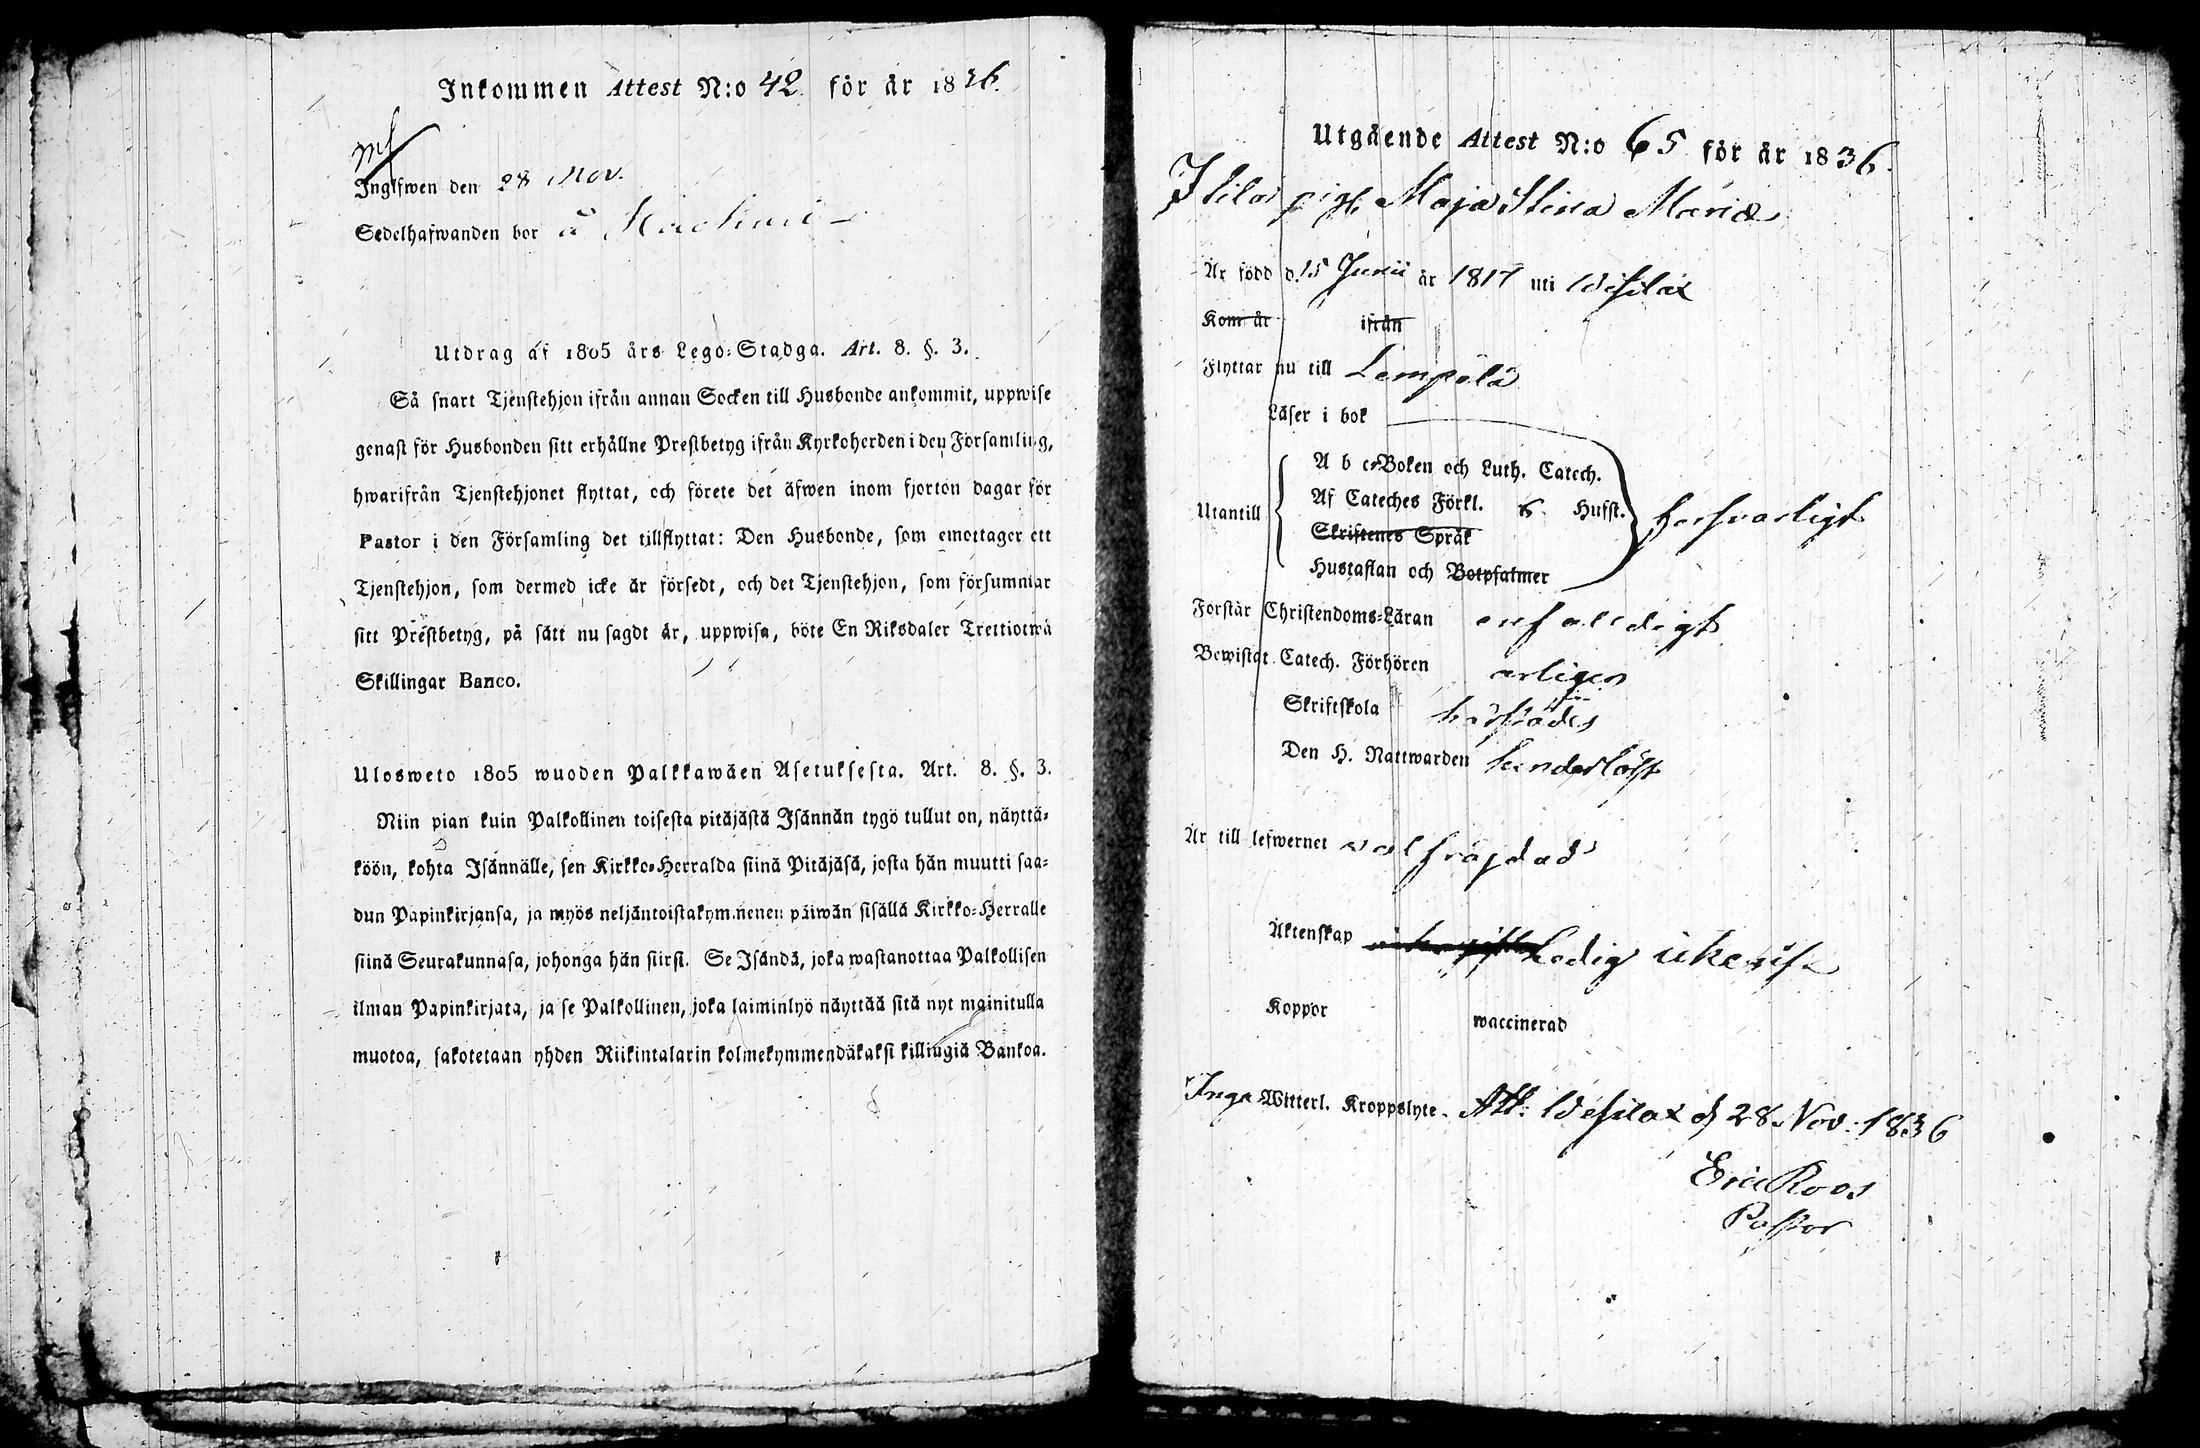 Inkommen Attest N:o 42 för år 1836.
Ingifwen den 28 Nov.
Sedelhafwanden bor å
Utdrag af 1805 års Lego-Stadga. Art. 8. §. 3.
Så snart Tjenstehjon ifrån annan Socken till Husbonde ankommit, uppwise
genast för Husbonden sitt erhållne Prestbetyg ifrån Kyrkoherden i den Församling,
hwarifrån Tjenstehjonet flyttat, och förete det äfwen inom fjorton dagar för
Pastor i den Församling det tillflyttat: Den Husbonde, som emottager ett
Tjenstehjon, som dermed icke är försedt, och det Tjenstehjon, som försummar
sitt Prestbetyg, på sätt nu sagdt är, uppwisa, böte En Riksdaler Trettiotwå
Skillingar Banco.
Ulosweto 1805 wuoden Palkkawäen Asetuksesta. Art. 8. §. 3.
Niin pian kuin Palkollinen toisesta pitäjästä Isännän tygö tullut on, näyttä-
köön, kohta Isännälle, sen Kirkko-Herralda siinä Pitäjäsä, josta hän muutti saa-
dun Papinkirjansa, ja myös neljäntoistakymmenen päiwän sisällä Kirkko-Herralle
siinä Seurakunnasa, johonga hän siirsi. Se Isändä, joka wastanottaa Palkollisen
ilman Papinkirjata, ja se Palkollinen, joka laiminlyö näyttää sitä nyt mainitulla
muotoa, sakotetaan yhden Riikintalarin kolmekymmendäkaksi killingiä Bankoa.
Utgående Attest N:o 65 för år 1836.
pig. Maja Stina
Är född d. 15 Junii år 1817 uti Wesilax
Kom år ifrån
Flyttar nu till Lempälä
Läser i bok
A b c-Boken och Luth. Catech.
Af Cateches Förkl. 6 Hufst.
Utantill försvarligt
Skriftenes Språk
Hustaflan och Botpsalmer
Förstår Christendoms-Läran enfaldigt
Bewistat Catech. Förhören årligen
Skriftskola härstädes
Den H. Nattwarden hinderlöst
Är till lefwernet välfrägdad
Äktenskap Ledig
Koppor waccinerad
Inga Witterl. Kroppslyte. Att. Wesilax d 28 Nov. 1836
Eric Roos
Pastor